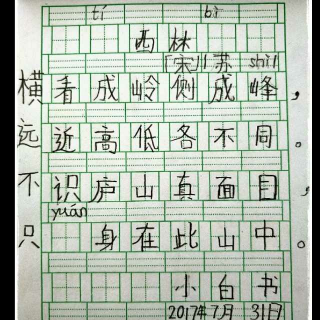 tí bì
西林
「宋」苏 shì
横看成岭侧成峰，
远近高低各不同。
不识庐山真面目，
yuán
只身在此山中。
小白书
2017年7月31日